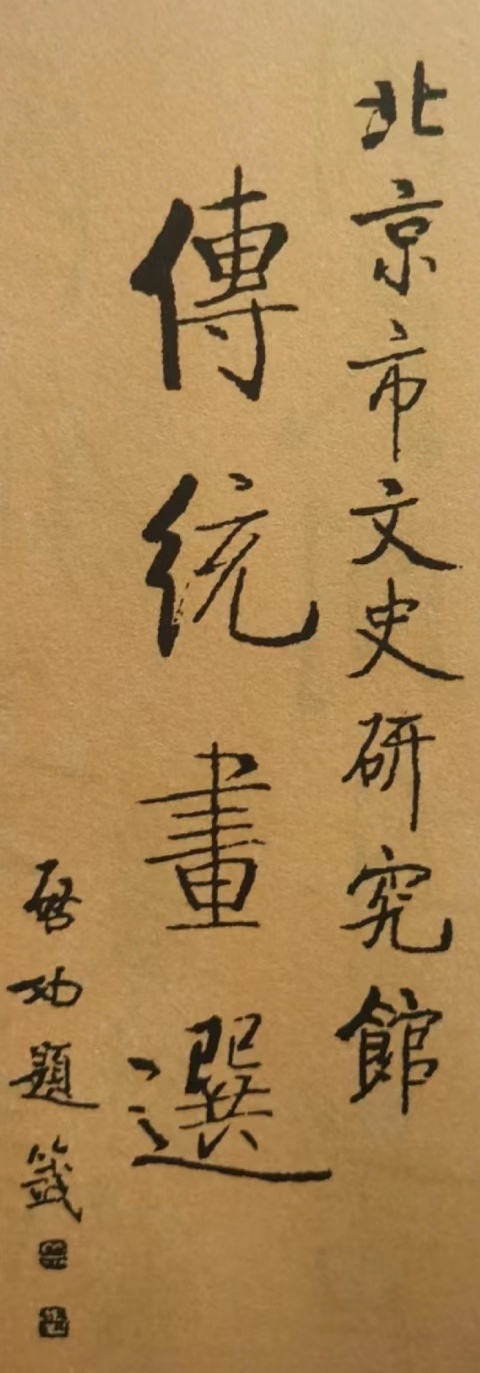 北京市文史研究館
傳統畫選
啓功題籤